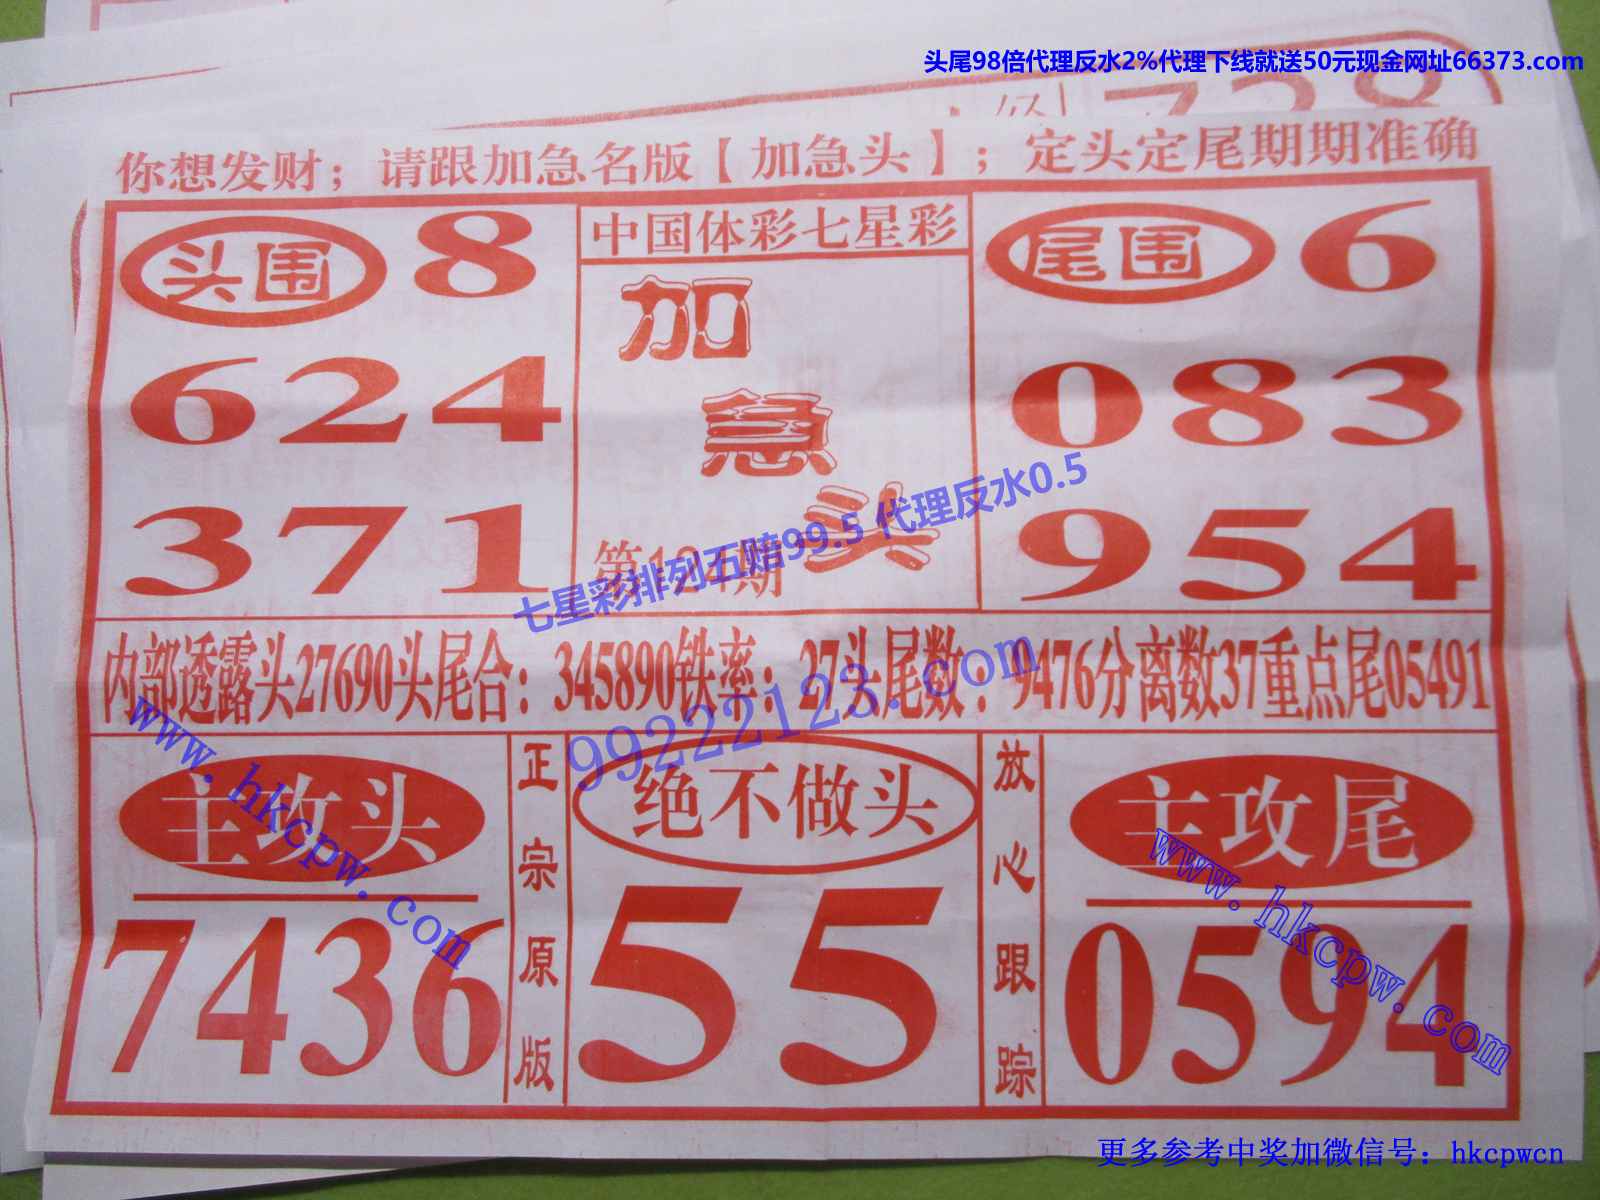 头尾98倍代理反水2%代理下线就送50元现金网址66373.com
你想发财；请跟加急名版【加急头】；定头定尾期期准确
头围 8
624
371
中国体彩七星彩
加
急
头
第124期
尾围 6
083
954
七星彩排列五赔99.5 代理反水0.5
内部透露头27690头尾合：345890铁率：27头尾数：9476分离数37重点尾05491
99222123.com
www.hkcpw.com
主攻头
7436
正宗原版
绝不做头
55
放心跟踪
主攻尾
0594
www.hkcpw.com
更多参考中奖加微信号：hkcpwcn